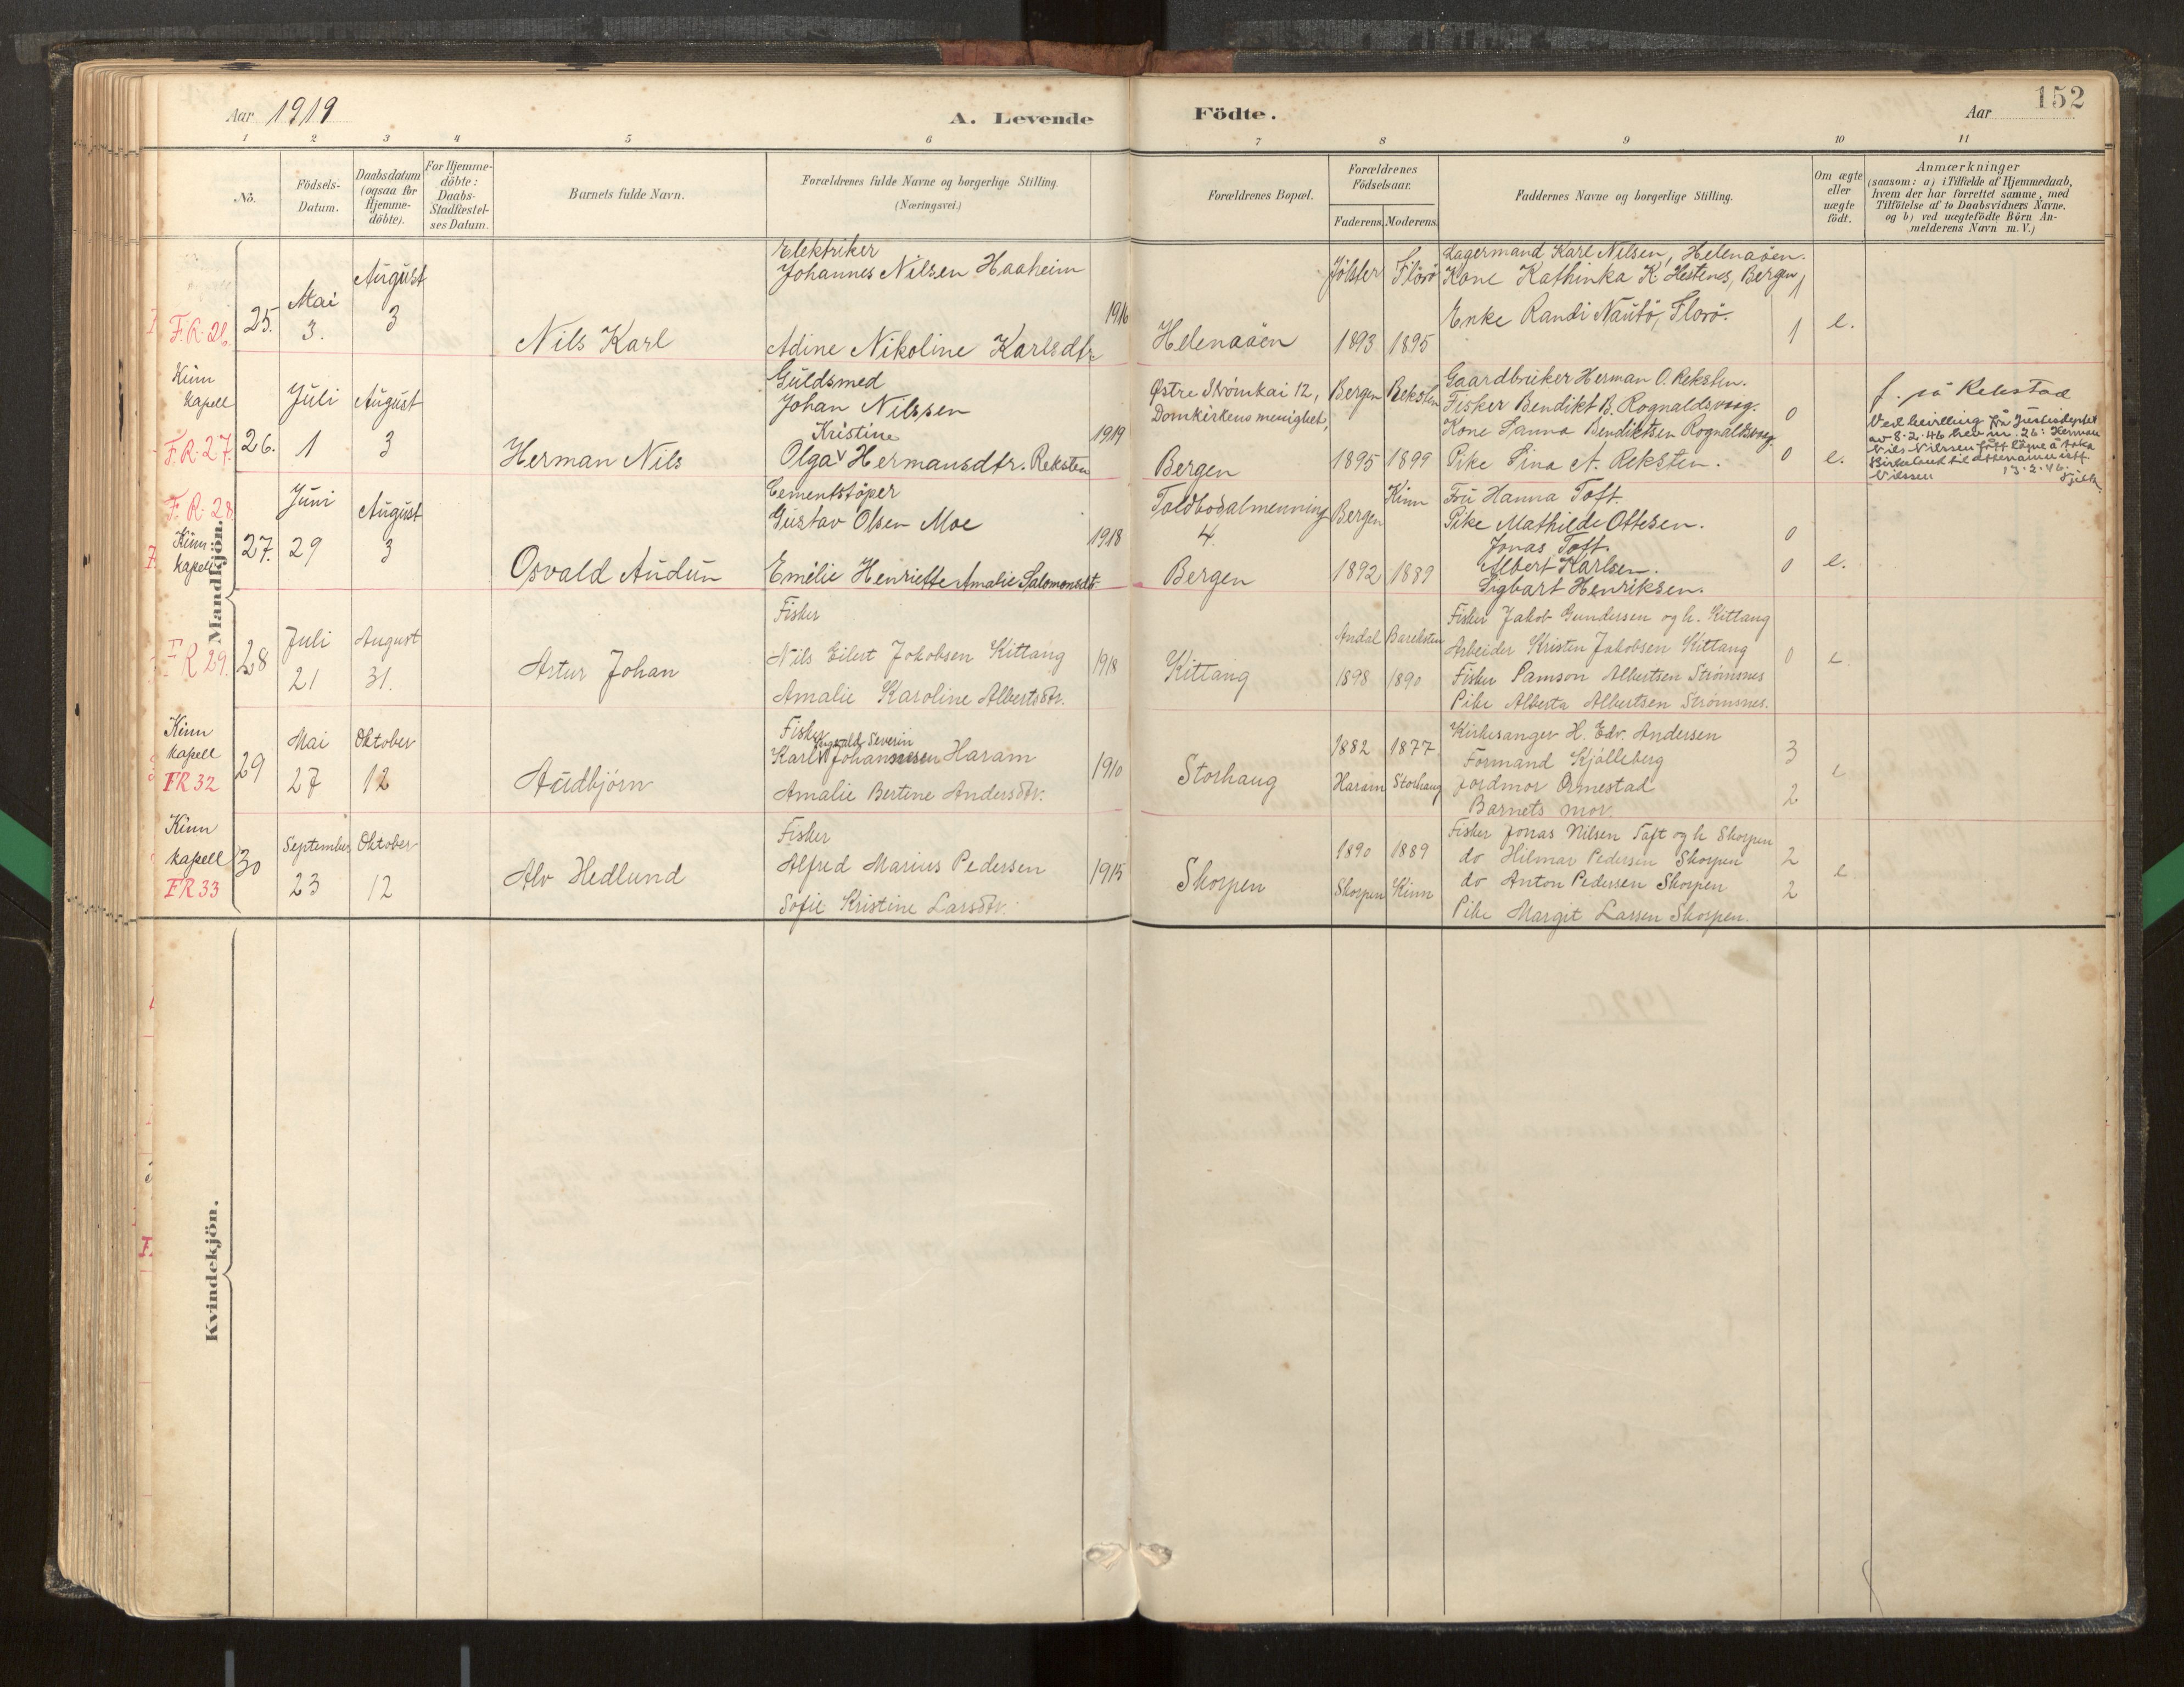 Aar 1919
A. Levende Födte.
Aar
152
1 2 3 4 5 6 7 8 9 10 11
No.
Födsels-
Datum.
Daabsdatum
(ogsaa for
Hjemme-
döbte).
For Hjemme-
döbte:
Daabs-
Stadfæstel-
ses Datum.
Barnets fulde Navn.
Forældrenes fulde Navne og borgerlige Stilling.
(Næringsvei.)
Forældrenes Bopæl.
Forældrenes
Födselsaar.
Faderens. Moderens.
Faddernes Navne og borgerlige Stilling.
Om ægte
eller
uægte
födt.
Anmærkninger
(saasom: a) i Tilfælde af Hjemmedaab,
hvem der har forrettet samme, med
Tilföielse af to Daabsvidners Navne.
og b) ved uægtefödte Börn An-
melderens Navn m. V.)
Mandkjön.
F.R. 26.
25.
Mai
3.
August
3
Nils Karl
Elektriker
Johannes Nilsen Haaheim
Adine Nikoline Karlsdtr.
1916
Helenaöen
Jölster Florö
1893 1895
Lagermand Karl Nilsen, Helenaöen.
Kone Kathinka K. Hestenes, Bergen
Enke Randi Nautö, Florö.
1
1
e.
Kinn
kapell
F.R. 27.
26.
Juli
1
August
3
Herman Nils
Guldsmed
Johan Nilssen
Kristine
Olga v Hermansdtr. Reksten
1919
Østre Strömkai 12,
Domkirkens menighet,
Bergen
Bergen Reksten
1895 1899
Gaardbruker Herman O. Reksten.
Fisker Bendikt B. Rognaldsvaag.
Kone Sanna Bendiktsen Rognaldsvaag
Pike Sina A. Reksten.
0
0
e.
f. på Rekstad
Ved bevilling frå Justisdeptet
av 8.2.46 hev nr. 26: Herman
Nils Nilssen fått löyve å taka
Birkeland til ettenamn istf.
Nilssen 13.2.46.
F.R. 28
Kinn
kapell
27.
Juni
29
August
3
Osvald Audun
Cementstöper
Gustav Olsen Moe
Emelie Henriette Amalie Salomonsdtr.
1918
Toldbodalmenning
4.
Bergen
Bergen Kinn
1892 1889
Fru Hanna Toft.
Pike Mathilde Ottesen.
Jonas Toft.
Albert Karlsen.
Sigbart Henriksen.
0
0
e.
FR 29.
28
Juli
21
August
31.
Artur Johan
Fisker
Nils Eilert Jakobsen Kittang
Amalie Karoline Albertsdtr.
1918
Kittang
Andal Bareksten
1898 1890
Fisker Jakob Gundersen og h. Kittang
Arbeider Kristen Jakobsen Kittang
Fisker Samson Albertsen Strömsnes
Pike Alberta Albertsen Strømsnes.
0
e.
Kinn
kapell
FR 32
29
Mai
27
Oktober
12
Audbjörn
Fisker
Severin
Karl Johannesen Haram
Amalie Bertine Andersdtr.
1910
Storhaug
1882 1877
Haram Storhaug
Kirkesanger H. Edv. Andersen
Formand Kjölleberg
Jordmor Ormestad
Barnets mor.
3
2
e
Kinn
kapell
FR 33
30
September
23
Oktober
12
Alv Hedlund
Fisker
Alfred Marius Pedersen
Sofie Kristine Larsdtr.
1915
Skorpen
1890 1889
Skorpen Kinn
Fisker Jonas Nilsen Toft og h Skorpen
do Hilmar Pedersen Skorpen
do Anton Pedersen Skorpen
Pike Margit Larsen Skorpen.
2
2
e
Kvindekjön.